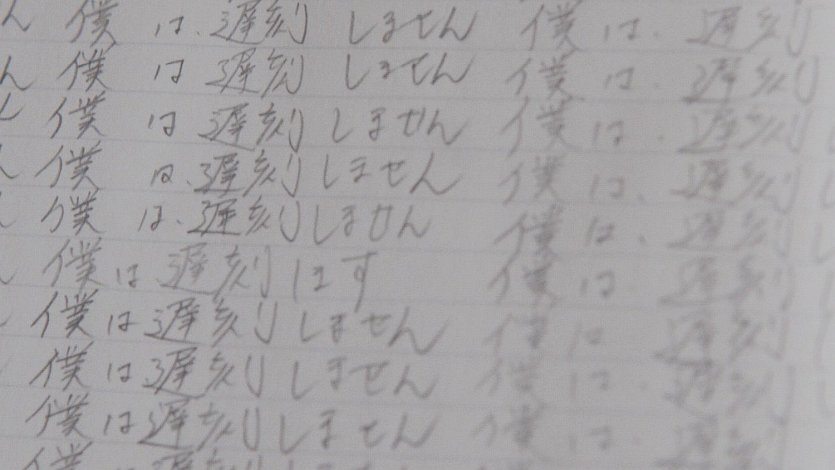 ん 僕は、遅刻しません 僕は、遅刻
ん 僕は遅刻しません 僕は、遅刻
僕は遅刻しません 僕は、遅刻
僕は、遅刻しません 僕は、遅刻
僕は、遅刻しません 僕は、遅刻
僕は遅刻します 僕は遅刻
僕は遅刻しません 僕は遅刻
僕は遅刻しません 僕は、遅刻
僕は遅刻しません 僕は、遅刻